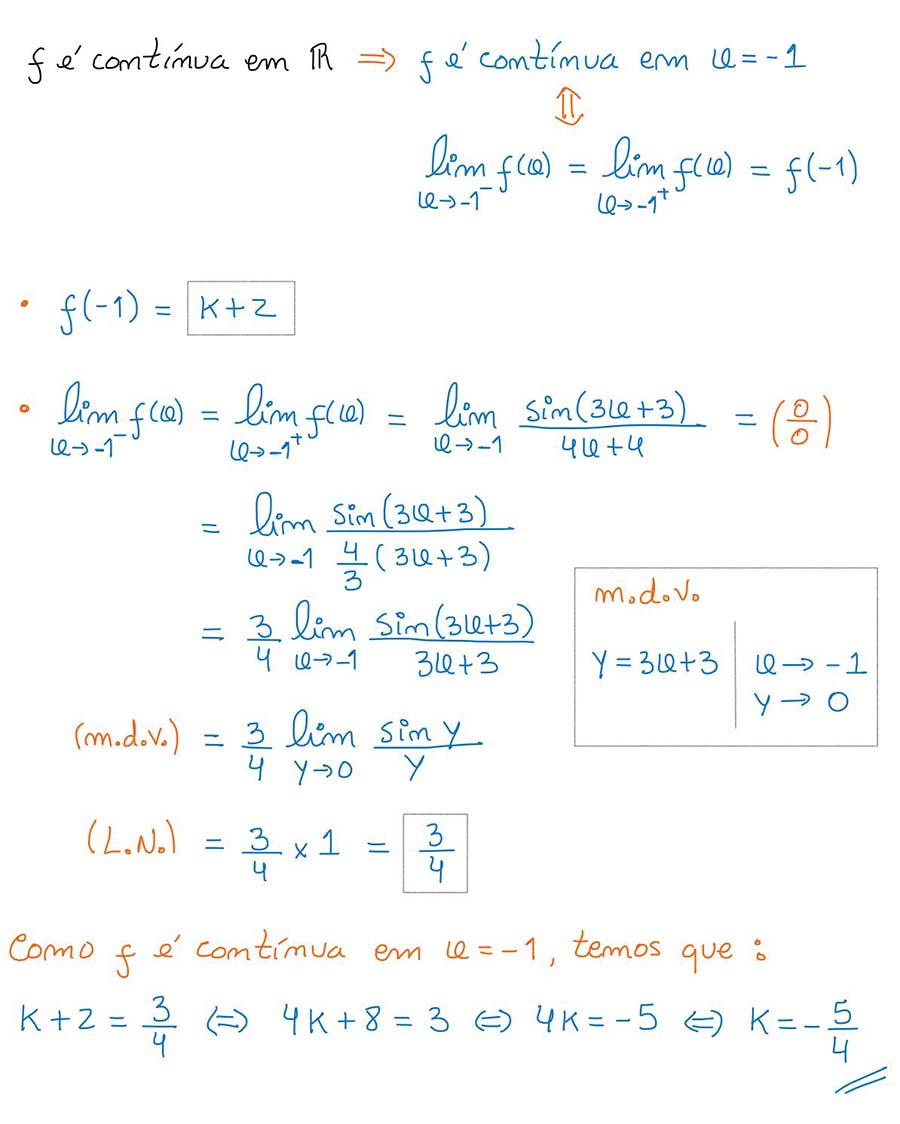 f é contínua em ℝ ⇒ f é contínua em x = -1
⇕
lim x→-1⁻ f(x) = lim x→-1⁺ f(x) = f(-1)
• f(-1) = K+2
• lim x→-1⁻ f(x) = lim x→-1⁺ f(x) = lim x→-1 sin(3x+3)/(4x+4) = (0/0)
= lim x→-1 sin(3x+3)/(4/3 (3x+3))
= 3/4 lim x→-1 sin(3x+3)/(3x+3)
m.d.v.
y = 3x+3 | x → -1
y → 0
(m.d.v.) = 3/4 lim y→0 sin y/y
(L.N.) = 3/4 × 1 = 3/4
Como f é contínua em x = -1, temos que :
K+2 = 3/4 ⇔ 4K+8 = 3 ⇔ 4K = -5 ⇔ K = -5/4